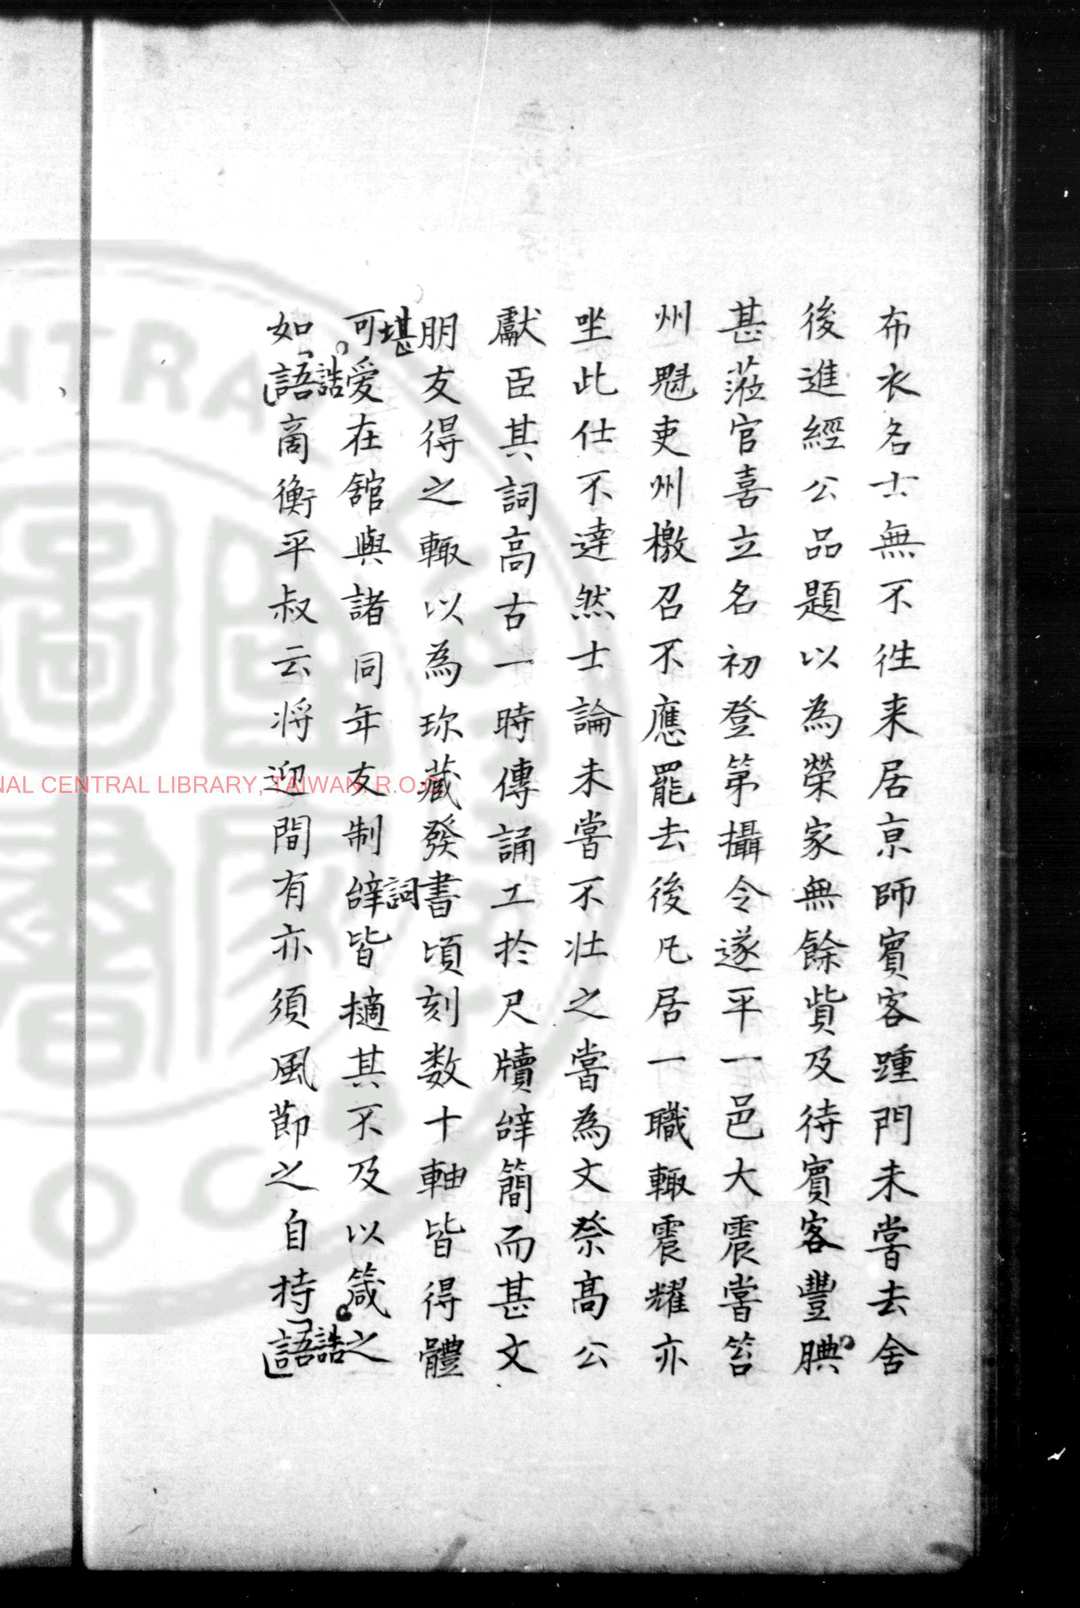 布衣名士無不徃来居京師賔客踵門未嘗去舍
後進經公品題以為榮家無餘貲及待賔客豐腆
甚蒞官喜立名初登第攝令遂平一邑大震嘗笞
州魁吏州檄召不應罷去後凡居一職輙震耀亦
坐此仕不達然士論未嘗不壯之嘗為文祭高公
獻臣其詞高古一時傳誦工扵尺牘辝簡而甚文
朋友得之輙以為珎藏發書頃刻数十軸皆得體
可堪愛在舘與諸同年友制辝詞皆擿其不及以箴之
如語誥啇衡平叔云将迎間有亦須風莭之自持語誥
NAL CENTRAL LIBRARY, TAIWAN R.O.C